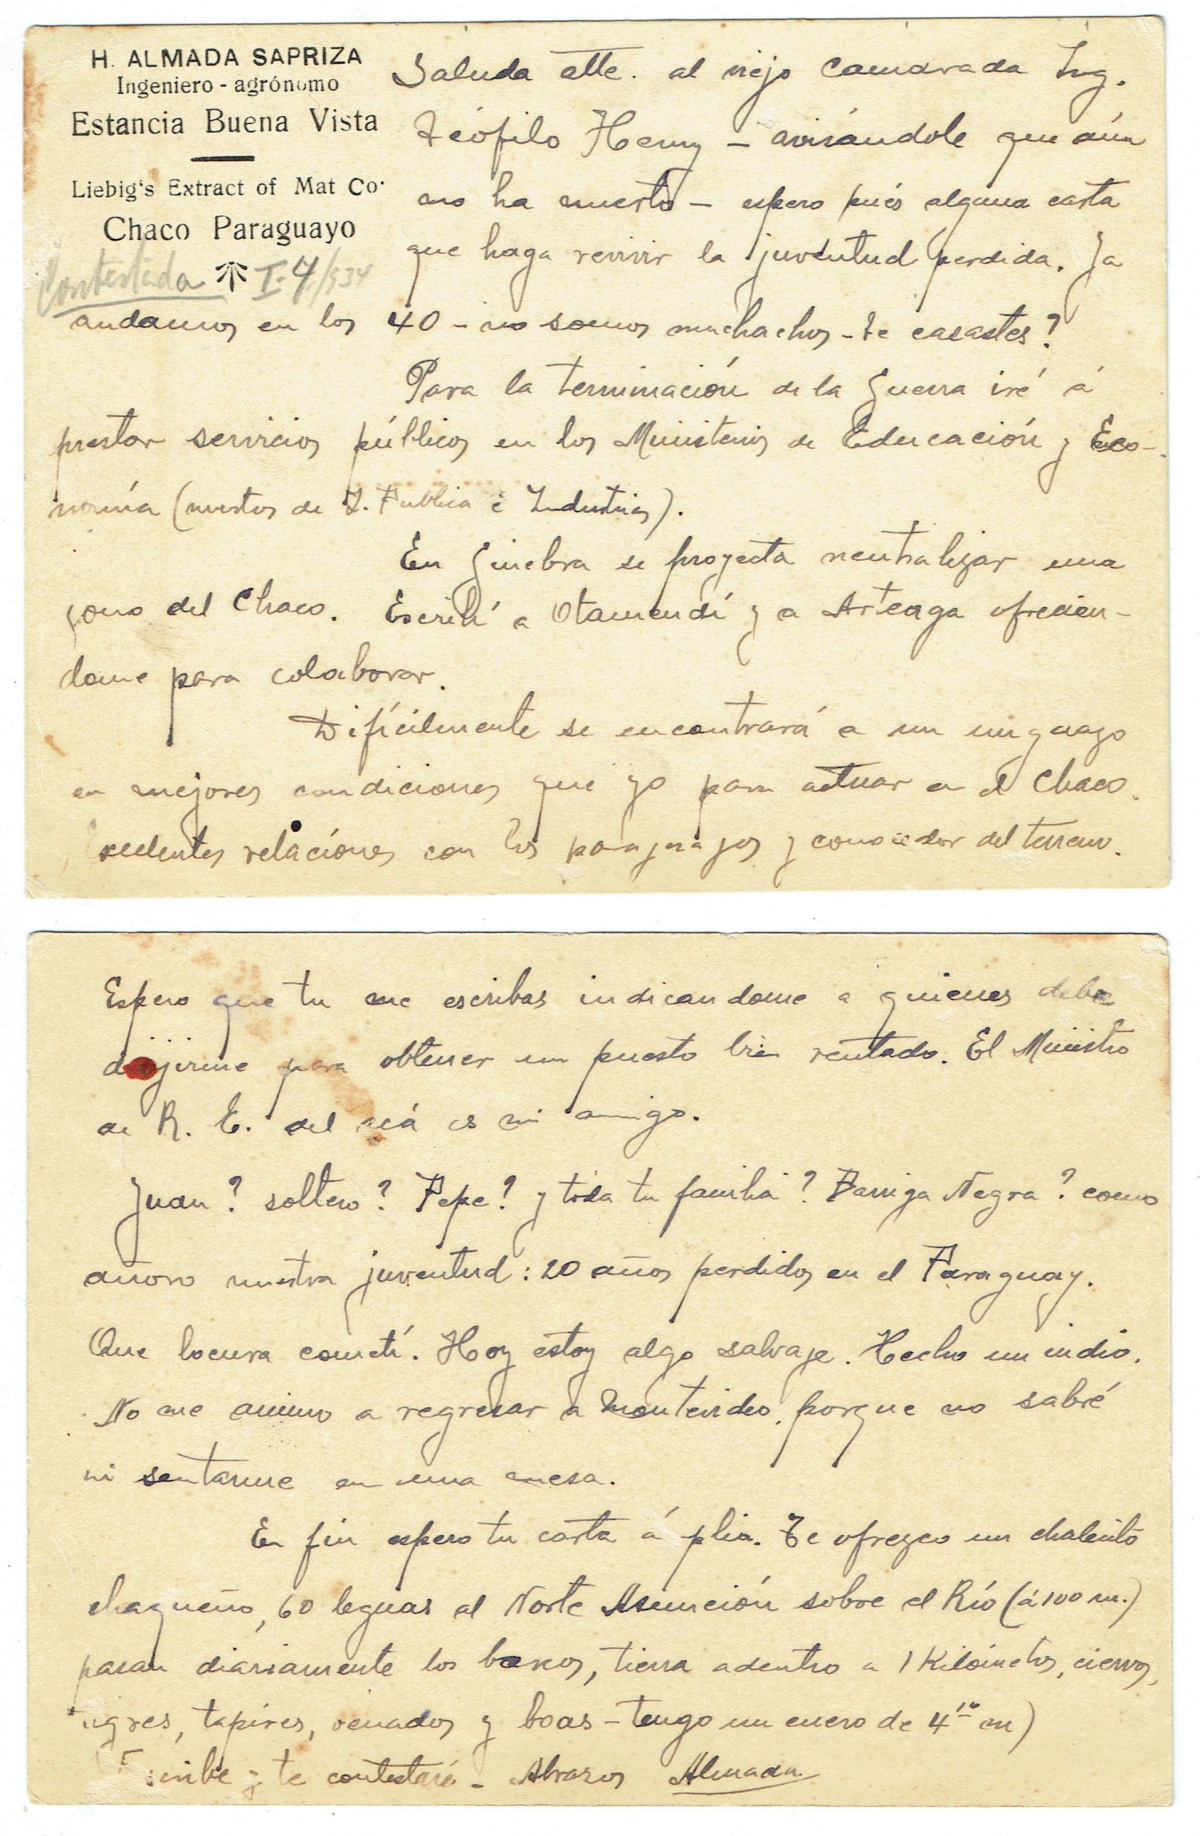 H. ALMADA SAPRIZA
Ingeniero - agrónomo
Estancia Buena Vista
Liebig's Extract of Mat Co.
Chaco Paraguayo
Contestada I-4/934
Saluda atte. al viejo camarada Ing.
Teófilo Henry - avisándole que aún
no ha muerto - espero pués alguna carta
que haga revivir la juventud perdida. Ya
andamos en los 40 - no somos muchachos - te casastes?
Para la terminación de la Guerra iré á
prestar servicios públicos en los Ministerios de Educación y Eco-
nomía (nuestros de I. Publica é Industrias).
En Ginebra se proyecta neutralizar una
zona del Chaco. Escribí a Otamendí y a Arteaga ofrecien-
dome para colaborar.
Difícilmente se encontrará a un uruguayo
en mejores condiciones que yo para actuar en el Chaco.
Excelentes relaciones con los paraguayos y conocedor del terreno.
Espero que tu me escribas indicandome a quienes debo
dirijirme para obtener un puesto bien rentado. El Ministro
de R. E. del acá es mi amigo.
Juan? soltero? Pepe? y toda tu familia? Barriga Negra? como
añoro nuestra juventud: 20 años perdidos en el Paraguay.
Que locura cometí. Hoy estoy algo salvaje. Hecho un indio.
No me animo a regresar a Montevideo, porque no sabré
ni sentarme en una mesa.
En fin espero tu carta á plia. Te ofrezco un chalecito
chaqueño, 60 leguas al Norte Asunción sobre el Río (á 100 m.)
pasan diariamente los barcos, tierra adentro a 1 Kilómetro, ciervos,
tigres, tapires, venados y boas - tengo un cuero de 4 m)
Escribe y te contestaré - Abrazos Almada